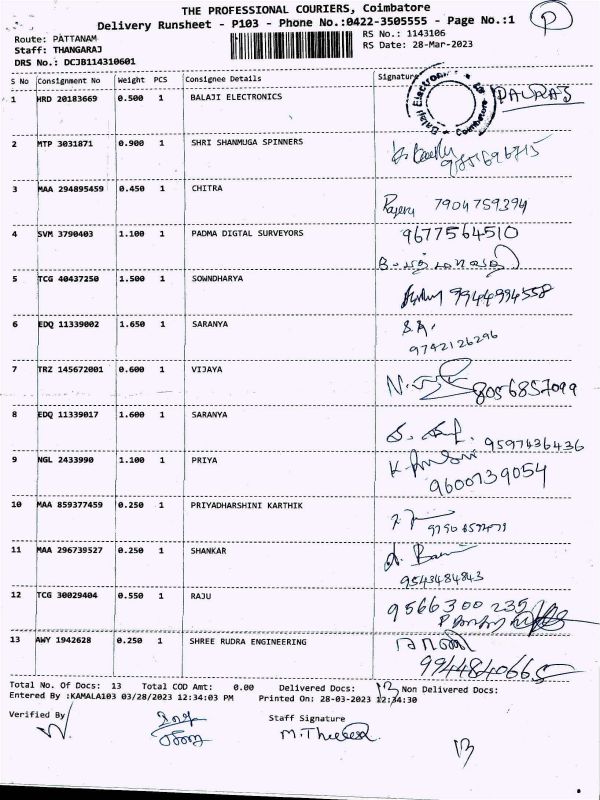 THE PROFESSIONAL COURIERS, Coimbatore
Delivery Runsheet - P103 - Phone No.:0422-3505555 - Page No.:1
P
Route: PATTANAM
RS No.: 1143106
Staff: THANGARAJ
RS Date: 28-Mar-2023
DRS No.: DCJB114310601
S No Consignment No Weight PCS Consignee Details Signature
Balaji Electronics Coimbatore
1 HRD 20183669 0.500 1 BALAJI ELECTRONICS
2 MTP 3031871 0.900 1 SHRI SHANMUGA SPINNERS
3 MAA 294895459 0.450 1 CHITRA 7904759394
4 SVM 3790403 1.100 1 PADMA DIGTAL SURVEYORS 9677564510
5 TCG 40437250 1.500 1 SOWNDHARYA 9944994558
6 EDQ 11339002 1.650 1 SARANYA
9742126296
7 TRZ 145672001 0.600 1 VIJAYA 8056857099
8 EDQ 11339017 1.600 1 SARANYA 9597436436
9 NGL 2433990 1.100 1 PRIYA
9600139054
10 MAA 859377459 0.250 1 PRIYADHARSHINI KARTHIK
11 MAA 296739527 0.250 1 SHANKAR
9543484843
12 TCG 30029404 0.550 1 RAJU 9566300235
13 AWY 1942628 0.250 1 SHREE RUDRA ENGINEERING
9944840665
Total No. Of Docs: 13 Total COD Amt: 0.00 Delivered Docs: 13 Non Delivered Docs:
Entered By :KAMALA103 03/28/2023 12:34:03 PM Printed On: 28-03-2023 12:34:30
Verified By Staff Signature
13